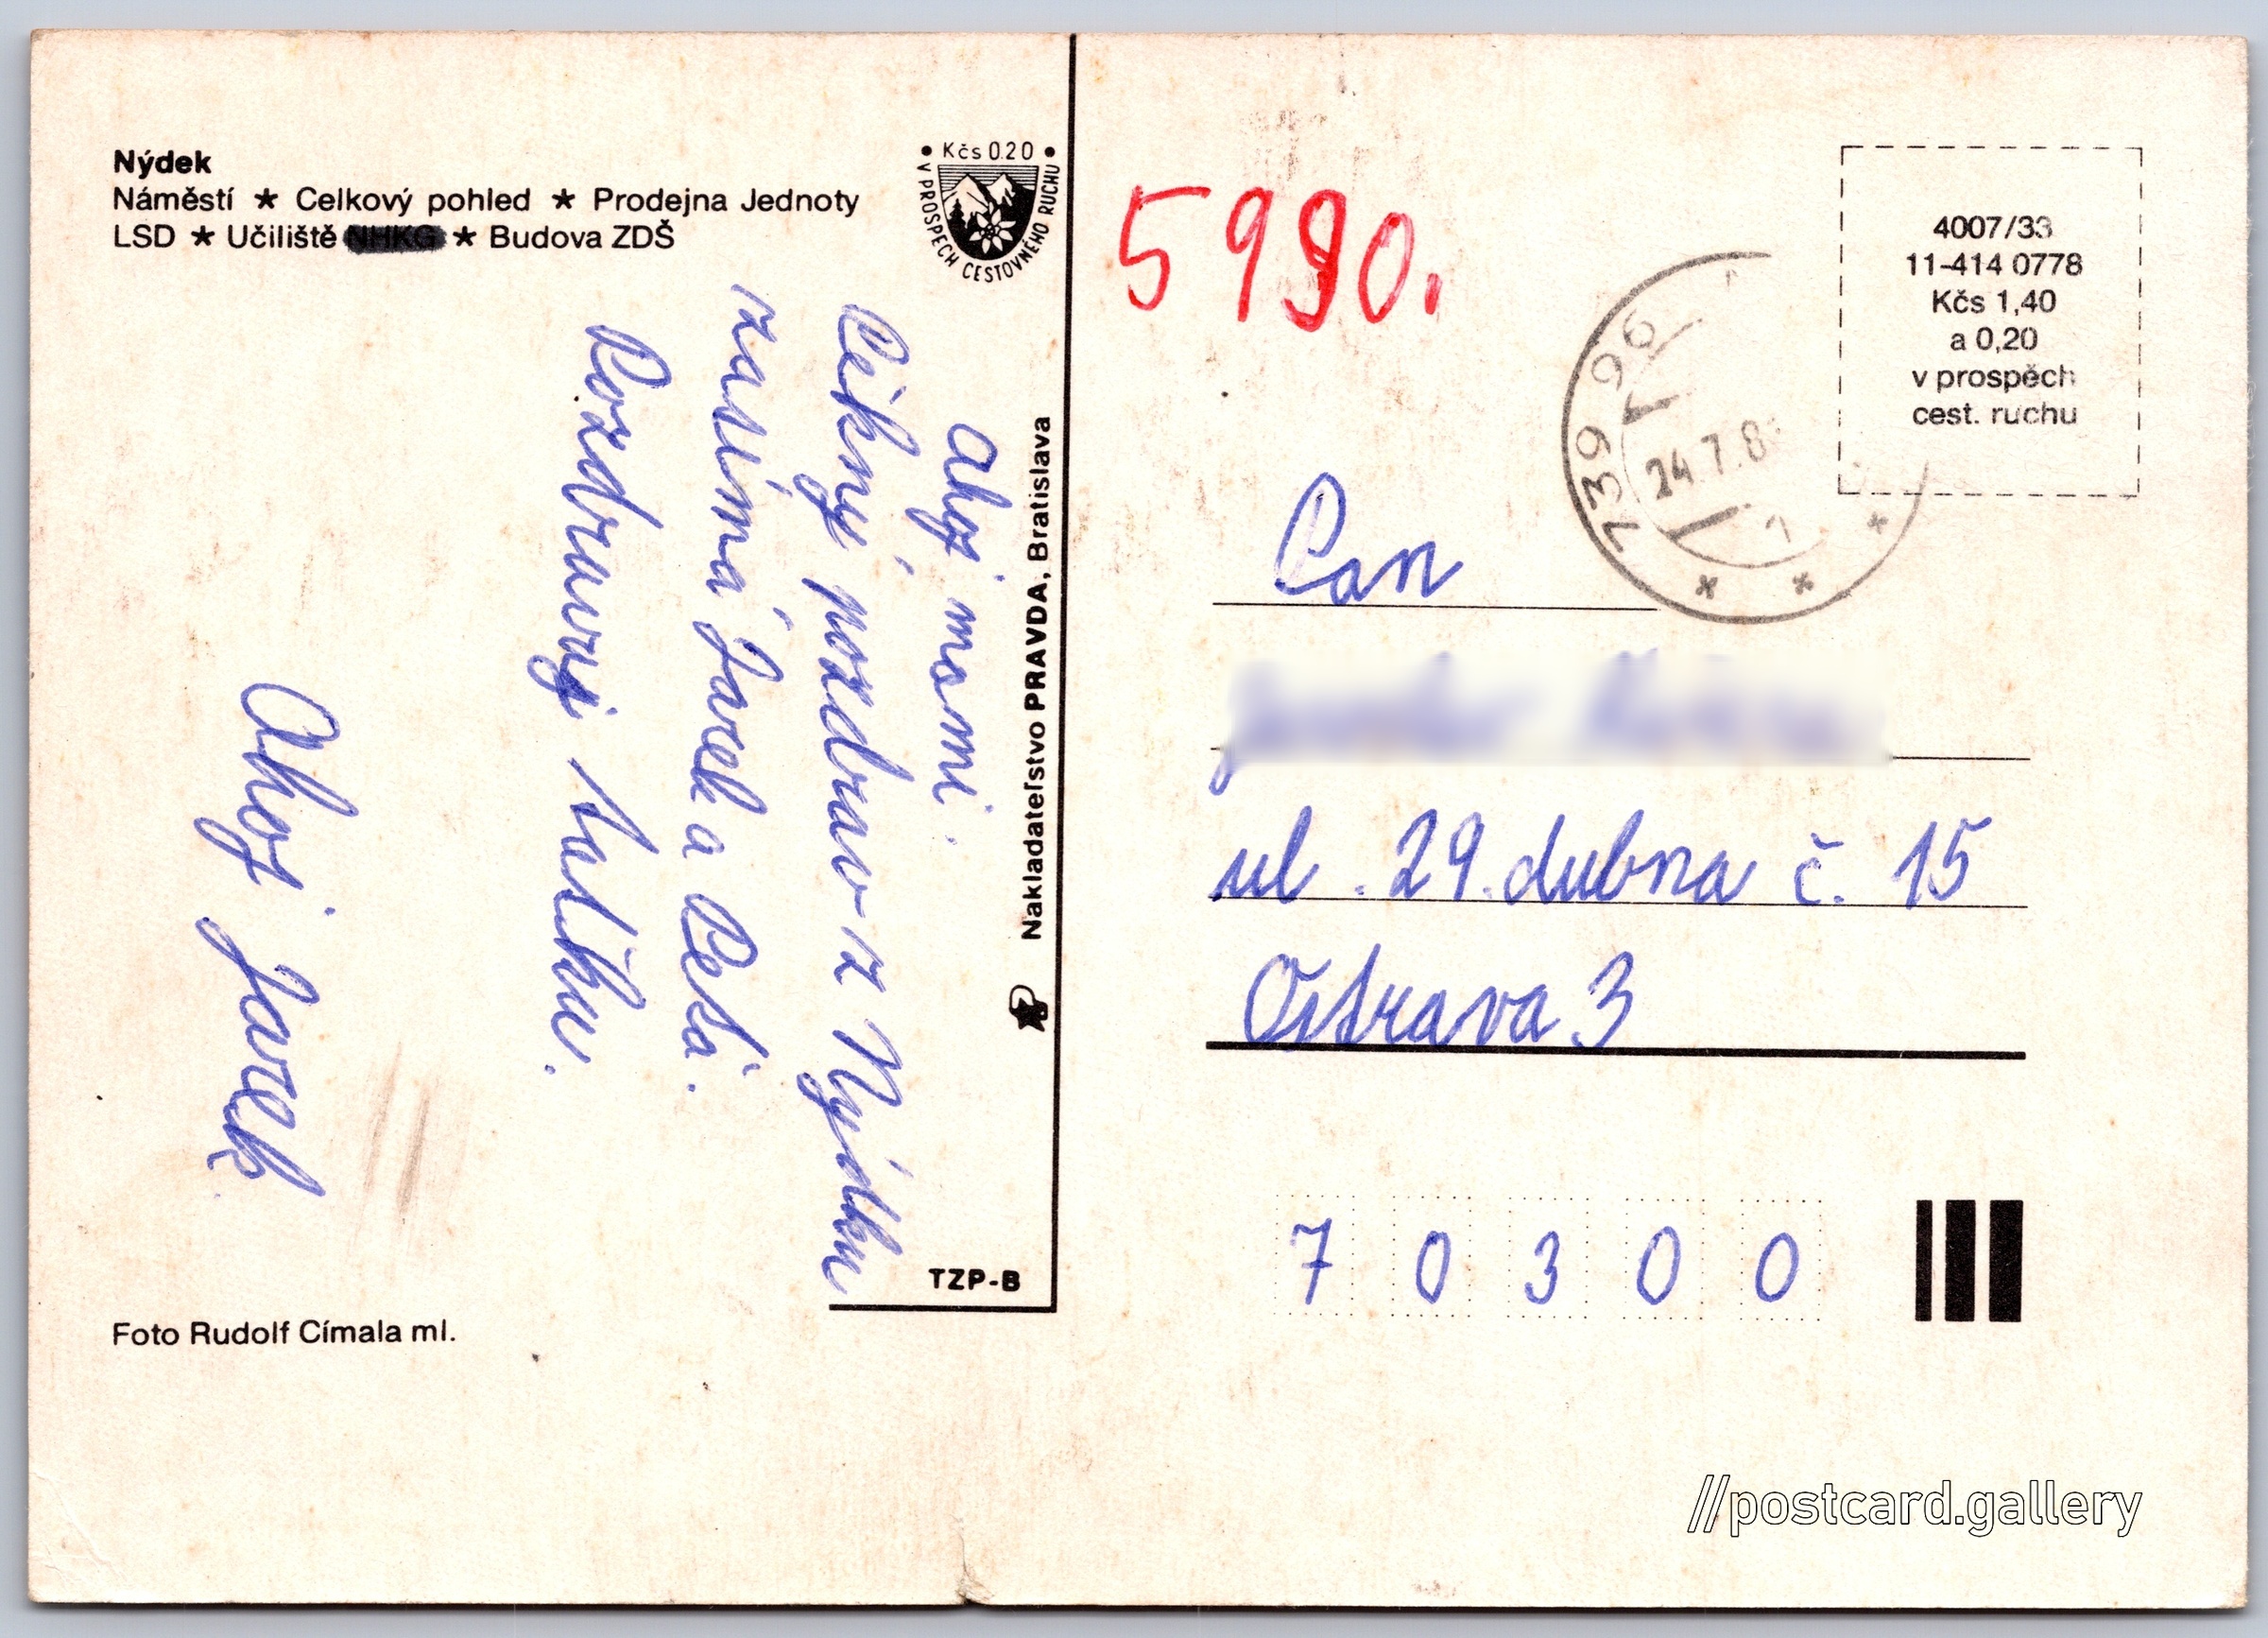 Nýdek
Náměstí ★ Celkový pohled ★ Prodejna Jednoty
LSD ★ Učiliště NHKG ★ Budova ZDŠ
• Kčs 0.20 •
V PROSPĚCH CESTOVNÉHO RUCHU
ahoj momi.
Pěkný pozdrav z Nýdku
zasímá Jarek a Peťa.
Pozdravuj taťku.
Ahoj Jarek
Nakladateľstvo PRAVDA, Bratislava
TZP-B
Foto Rudolf Címala ml.
5990.
4007/33
11-414 0778
Kčs 1,40
a 0,20
v prospěch
cest. ruchu
739 96
24.7.8
1
Pan
ul. 29. dubna č. 15
Ostrava 3
7 0 3 0 0
//postcard.gallery